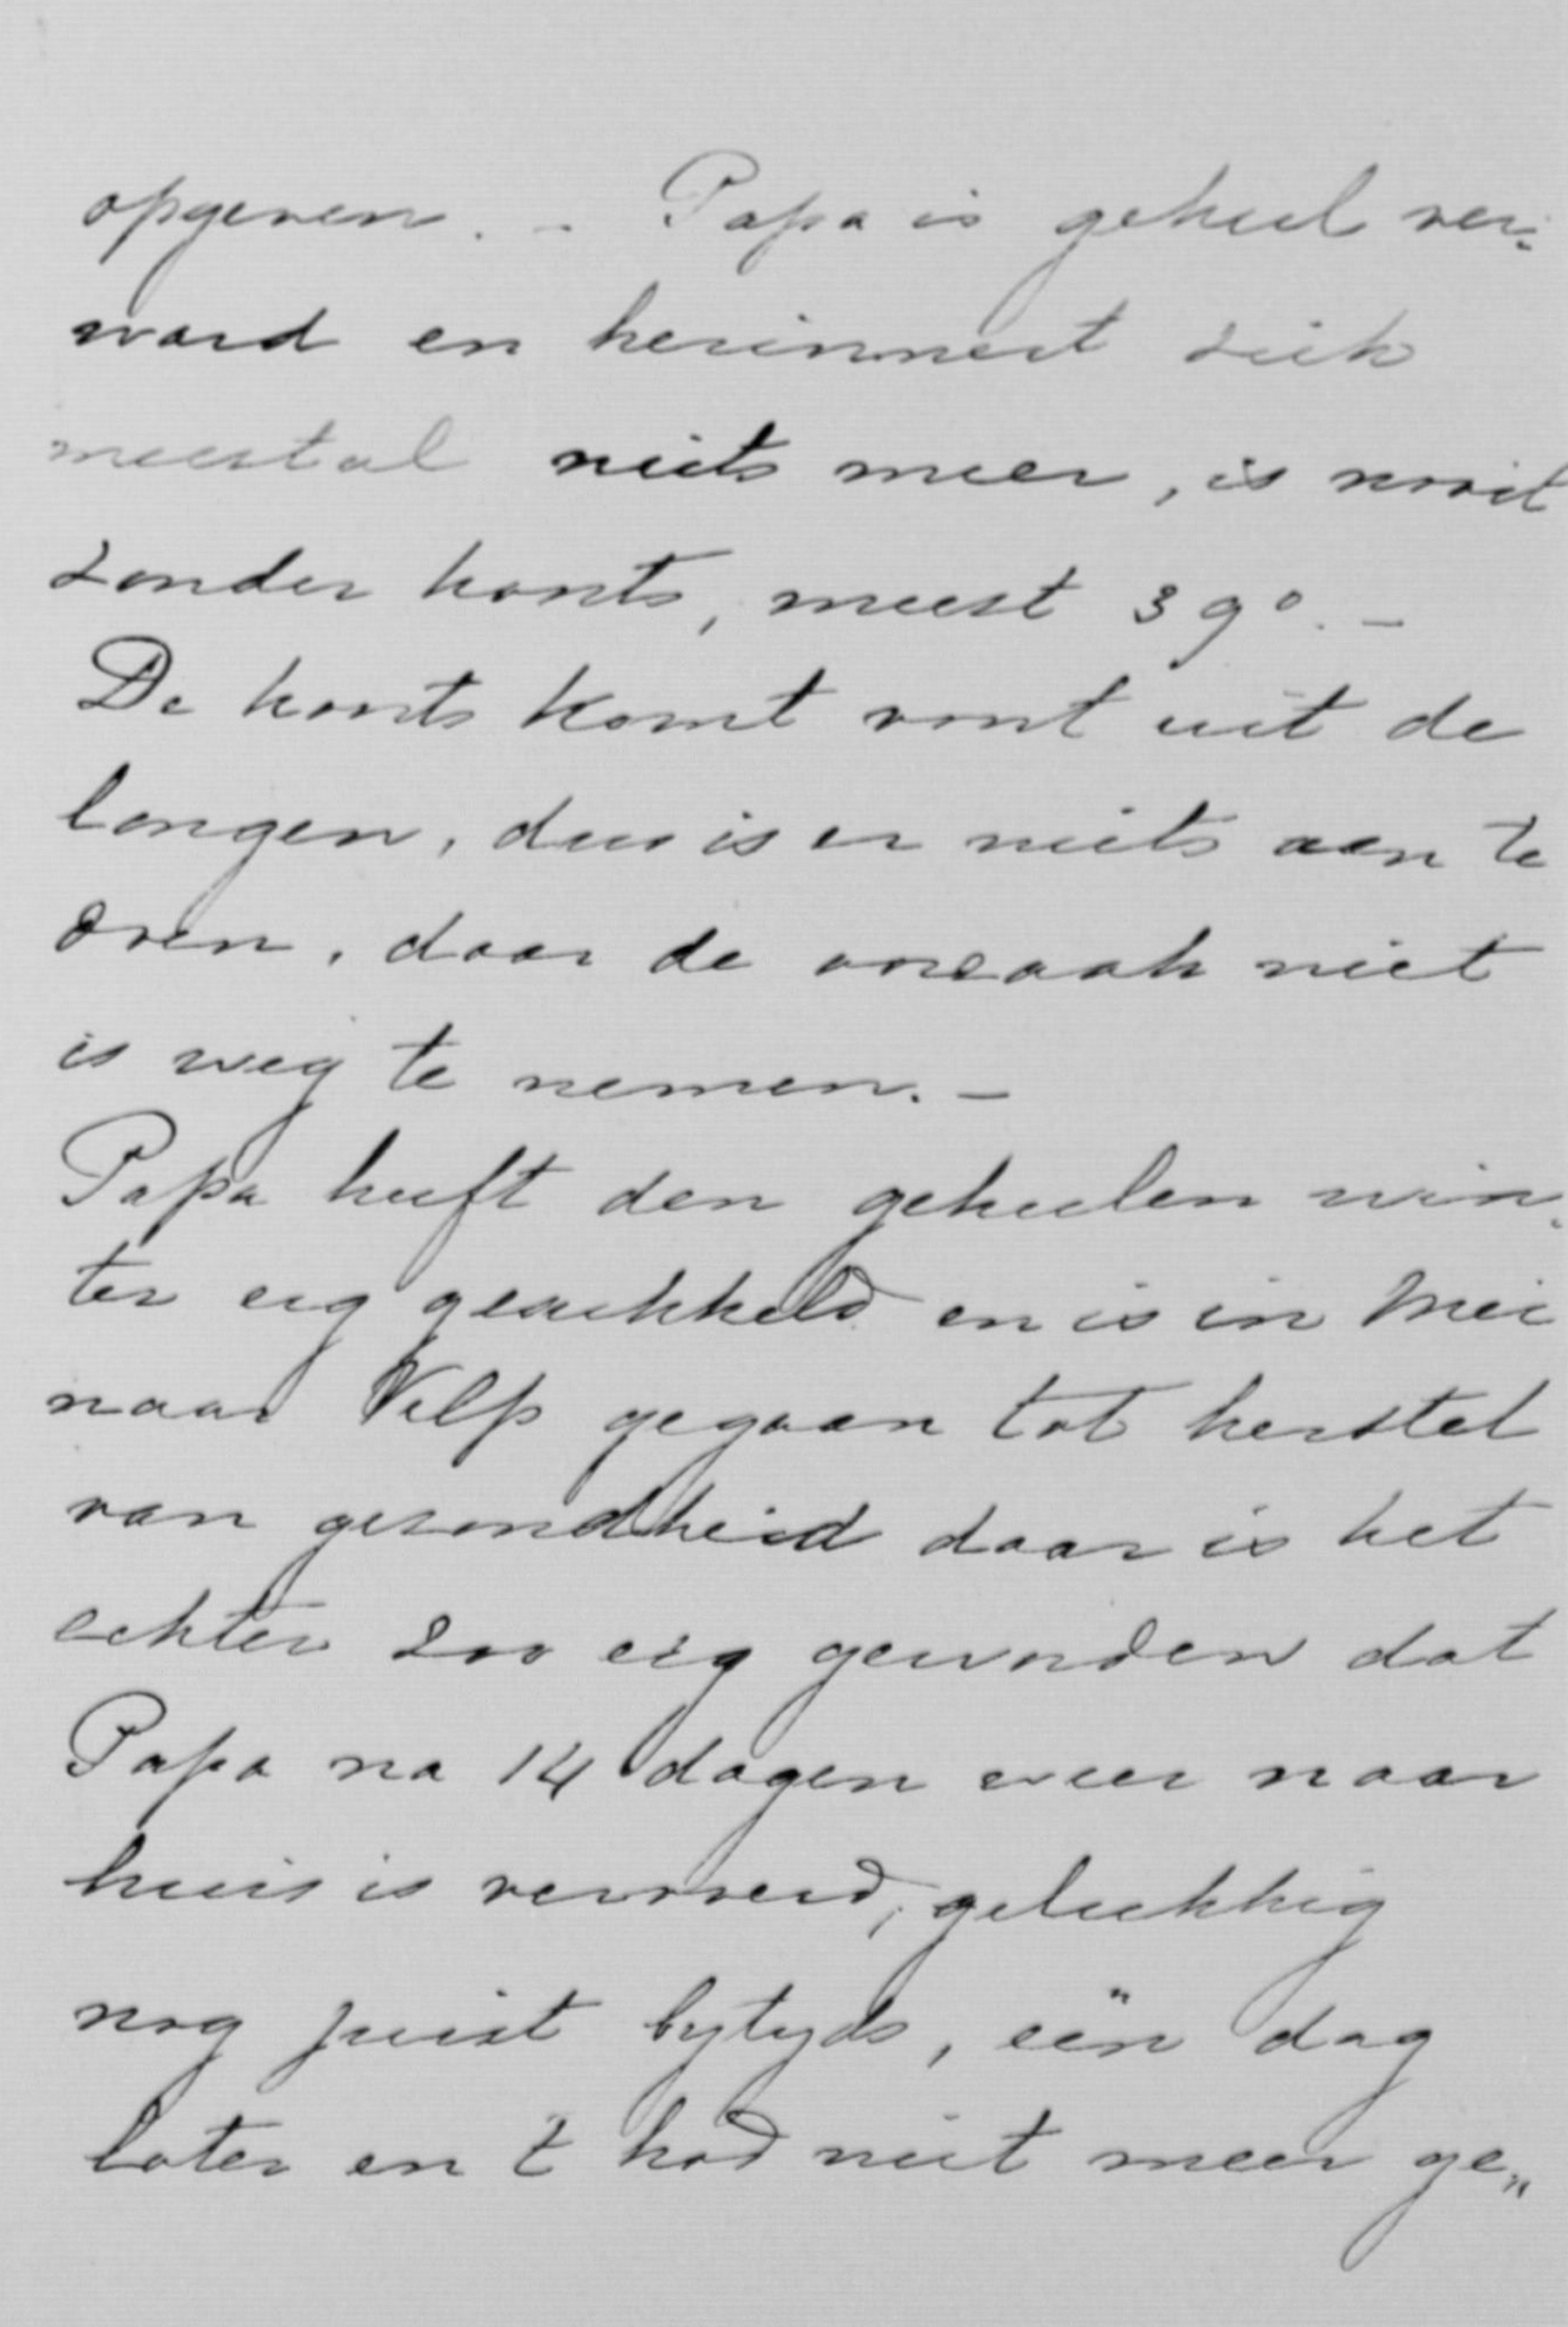 opgeven. - Papa is geheel ver-
ward en herinnert zich
meestal niets meer, is nooit
zonder koorts, meest 39°. -
De koorts komt voort uit de
longen, dus is er niets aan te
doen, daar de oorzaak niet
is weg te nemen. -
Papa heeft den geheelen win-
ter erg gesukkeld en is in Mei
naar Velp gegaan tot herstel
van gezondheid daar is het
echter zoo erg geworden dat
Papa na 14 dagen weer naar
huis is vervoerd, gelukkig
nog juist bytyds, één dag
later en 't had niet meer ge„